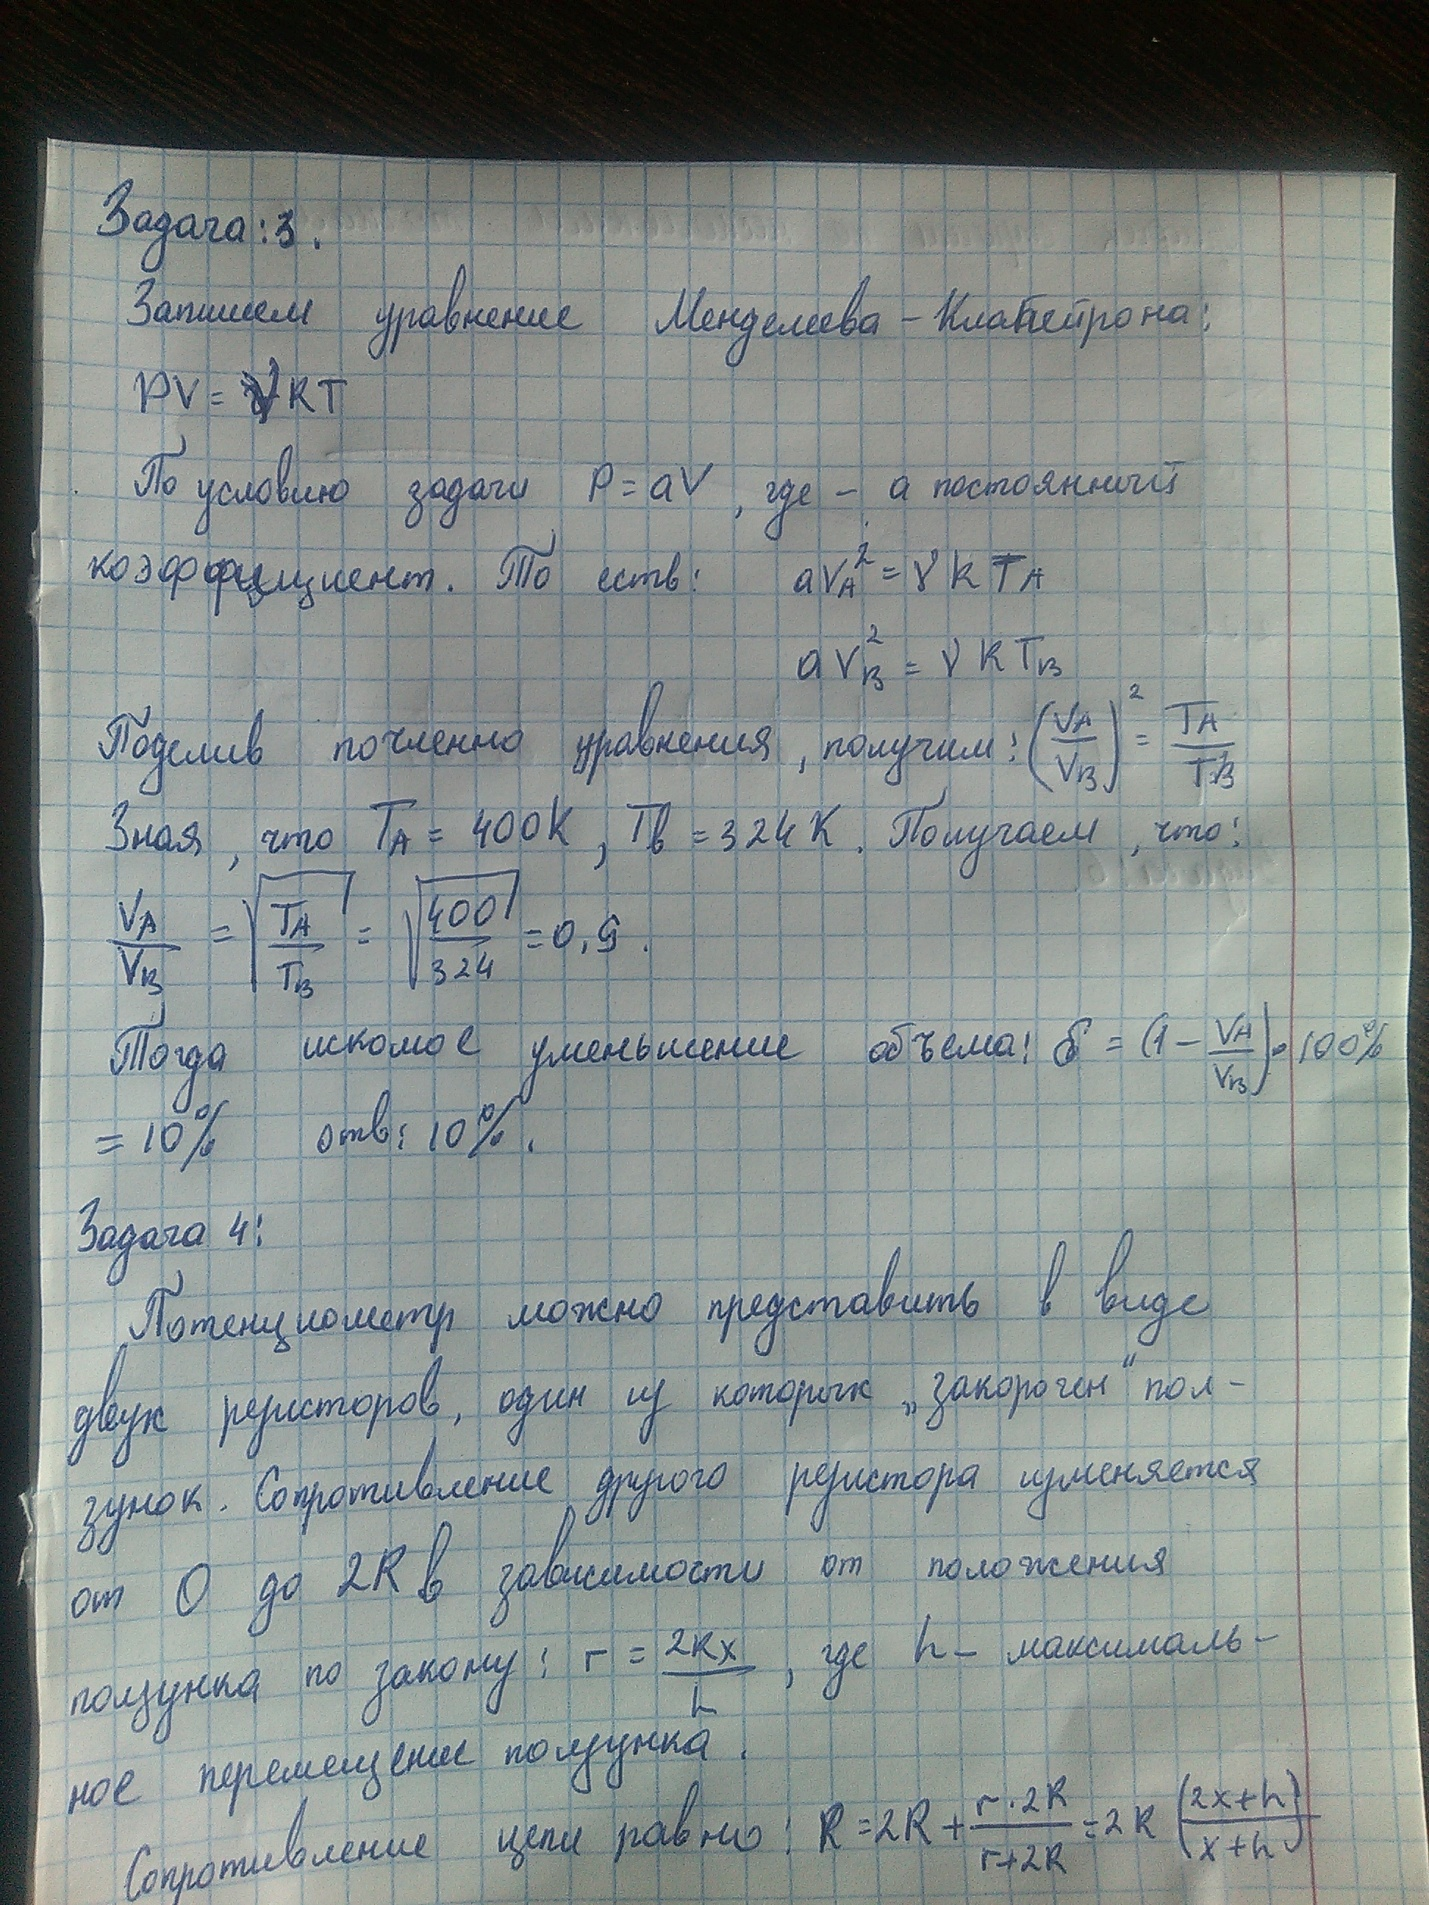 Задача: 3.
Запишем уравнение Менделеева - Клапейрона:
PV = νRT
По условию задачи P = aV, где - a постоянный
коэффициент. То есть: aV_A² = νRT_A
aV_B² = νRT_B
Поделив почленно уравнения, получим: (V_A/V_B)² = T_A/T_B
Зная, что T_A = 400K, T_B = 324K. Получаем, что:
V_A/V_B = √(T_A/T_B) = √(400/324) = 0,9.
Тогда искомое уменьшение объема: δ = (1 - V_A/V_B) · 100%
= 10% отв: 10%.
Задача 4:
Потенциометр можно представить в виде
двух резисторов, один из которых „закорочен“ пол-
зунок. Сопротивление другого резистора изменяется
от 0 до 2R в зависимости от положения
ползунка по закону: r = 2Rx/h, где h - максималь-
ное перемещение ползунка.
Сопротивление цепи равно: R = 2R + r·2R/r+2R = 2R (2x+h/x+h)